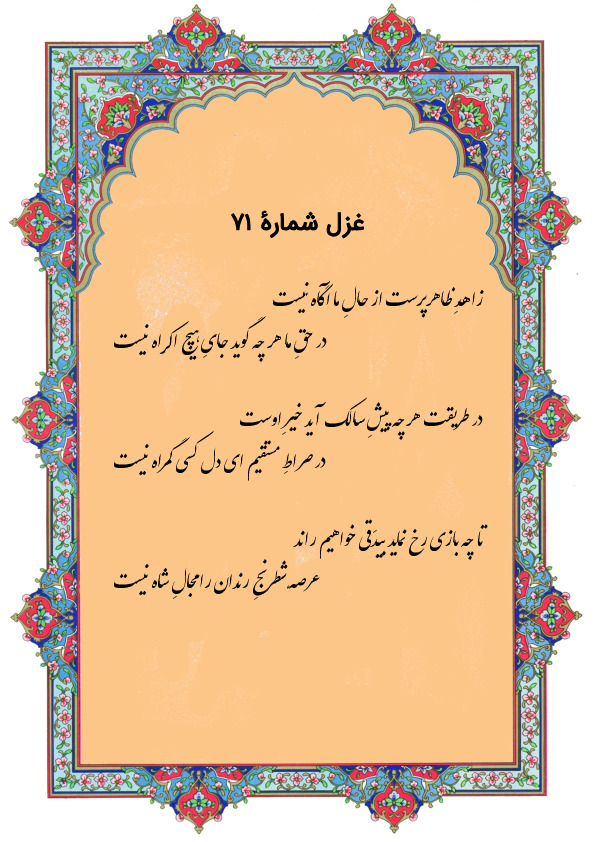 غزل شمارهٔ ۷۱
زاهدِ ظاهرپرست از حالِ ما آگاه نیست
در حقِ ما هر چه گوید جایِ هیچ اکراه نیست
در طریقت هر چه پیشِ سالک آید خیرِ اوست
در صراطِ مستقیم ای دل کسی گمراه نیست
تا چه بازی رخ نماید بیدقی خواهیم راند
عرصه شطرنجِ رندان را مجالِ شاه نیست